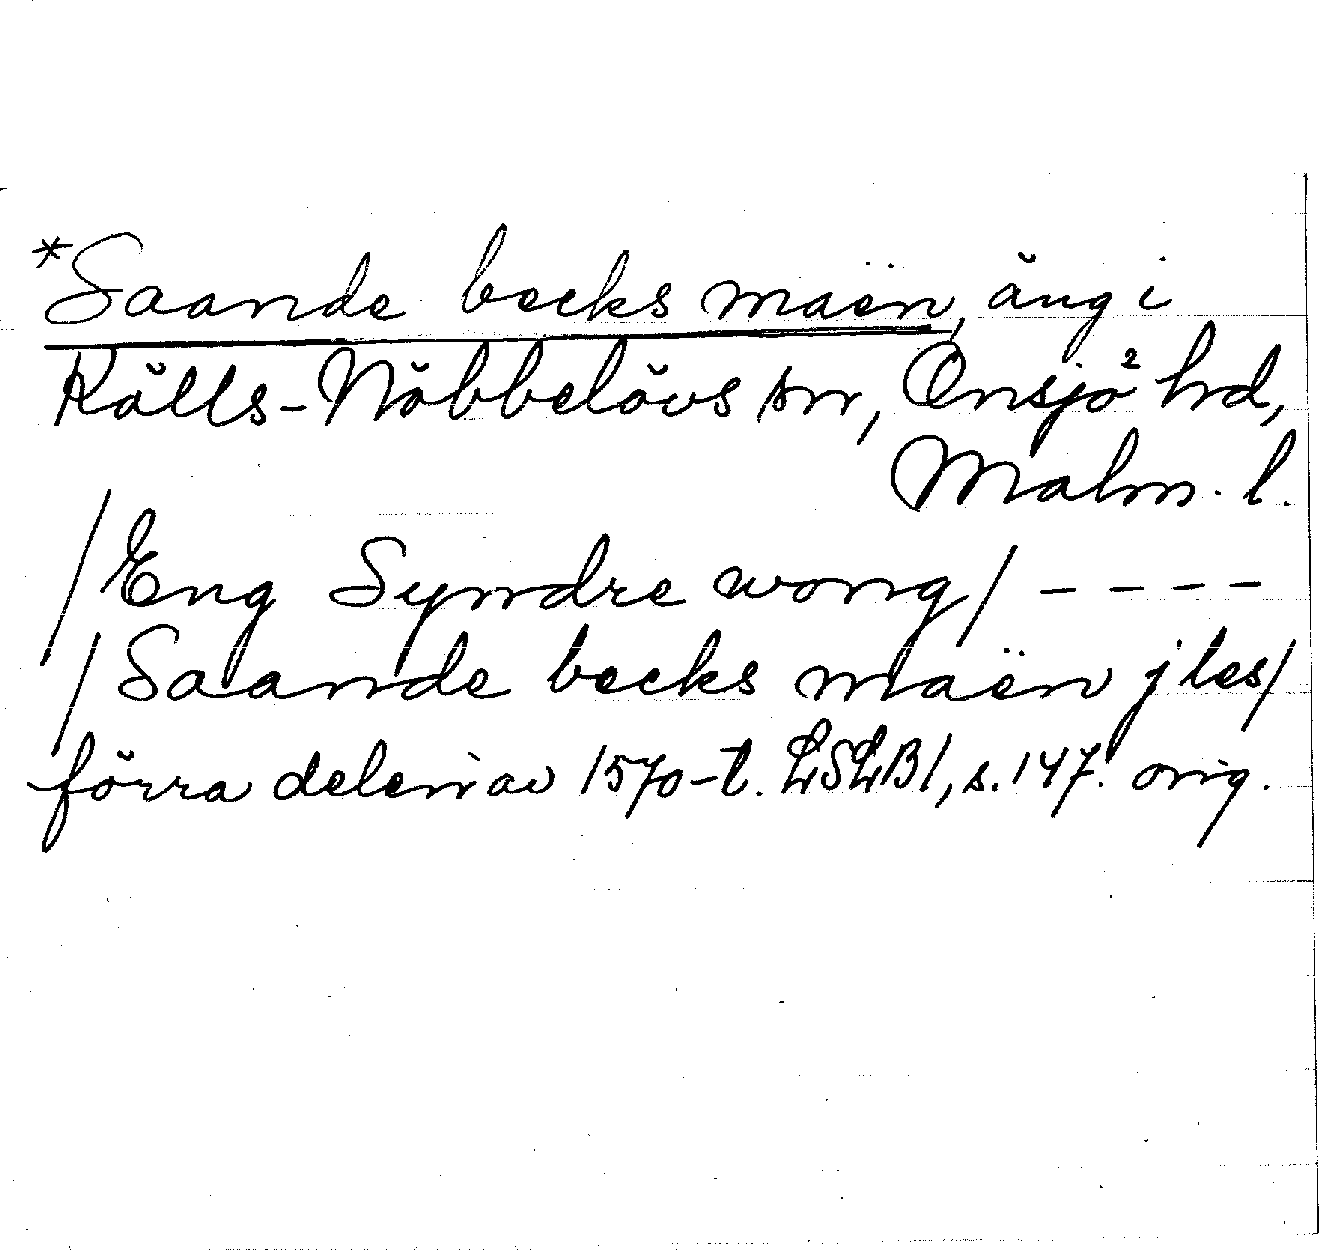 *Saande becks maën, äng i
Källs-Nöbbelövs sn, Onsjö hd,
Malm. l.
/Eng Syndre wong/ ----
/Saande becks maën j les/
förra delen av 1570-t. LSLB1, s. 147. orig.